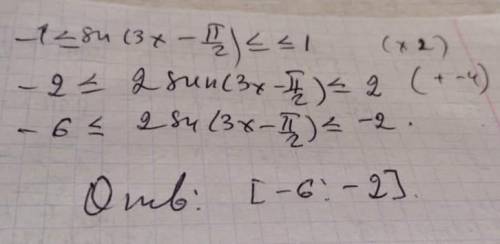 -1 ≤ sin(3x - π/2) ≤ ≤ 1 (×2)
-2 ≤ 2 sin(3x - π/2) ≤ 2 (+ -4)
-6 ≤ 2 sin(3x - π/2) ≤ -2.
Отв: [-6; -2].